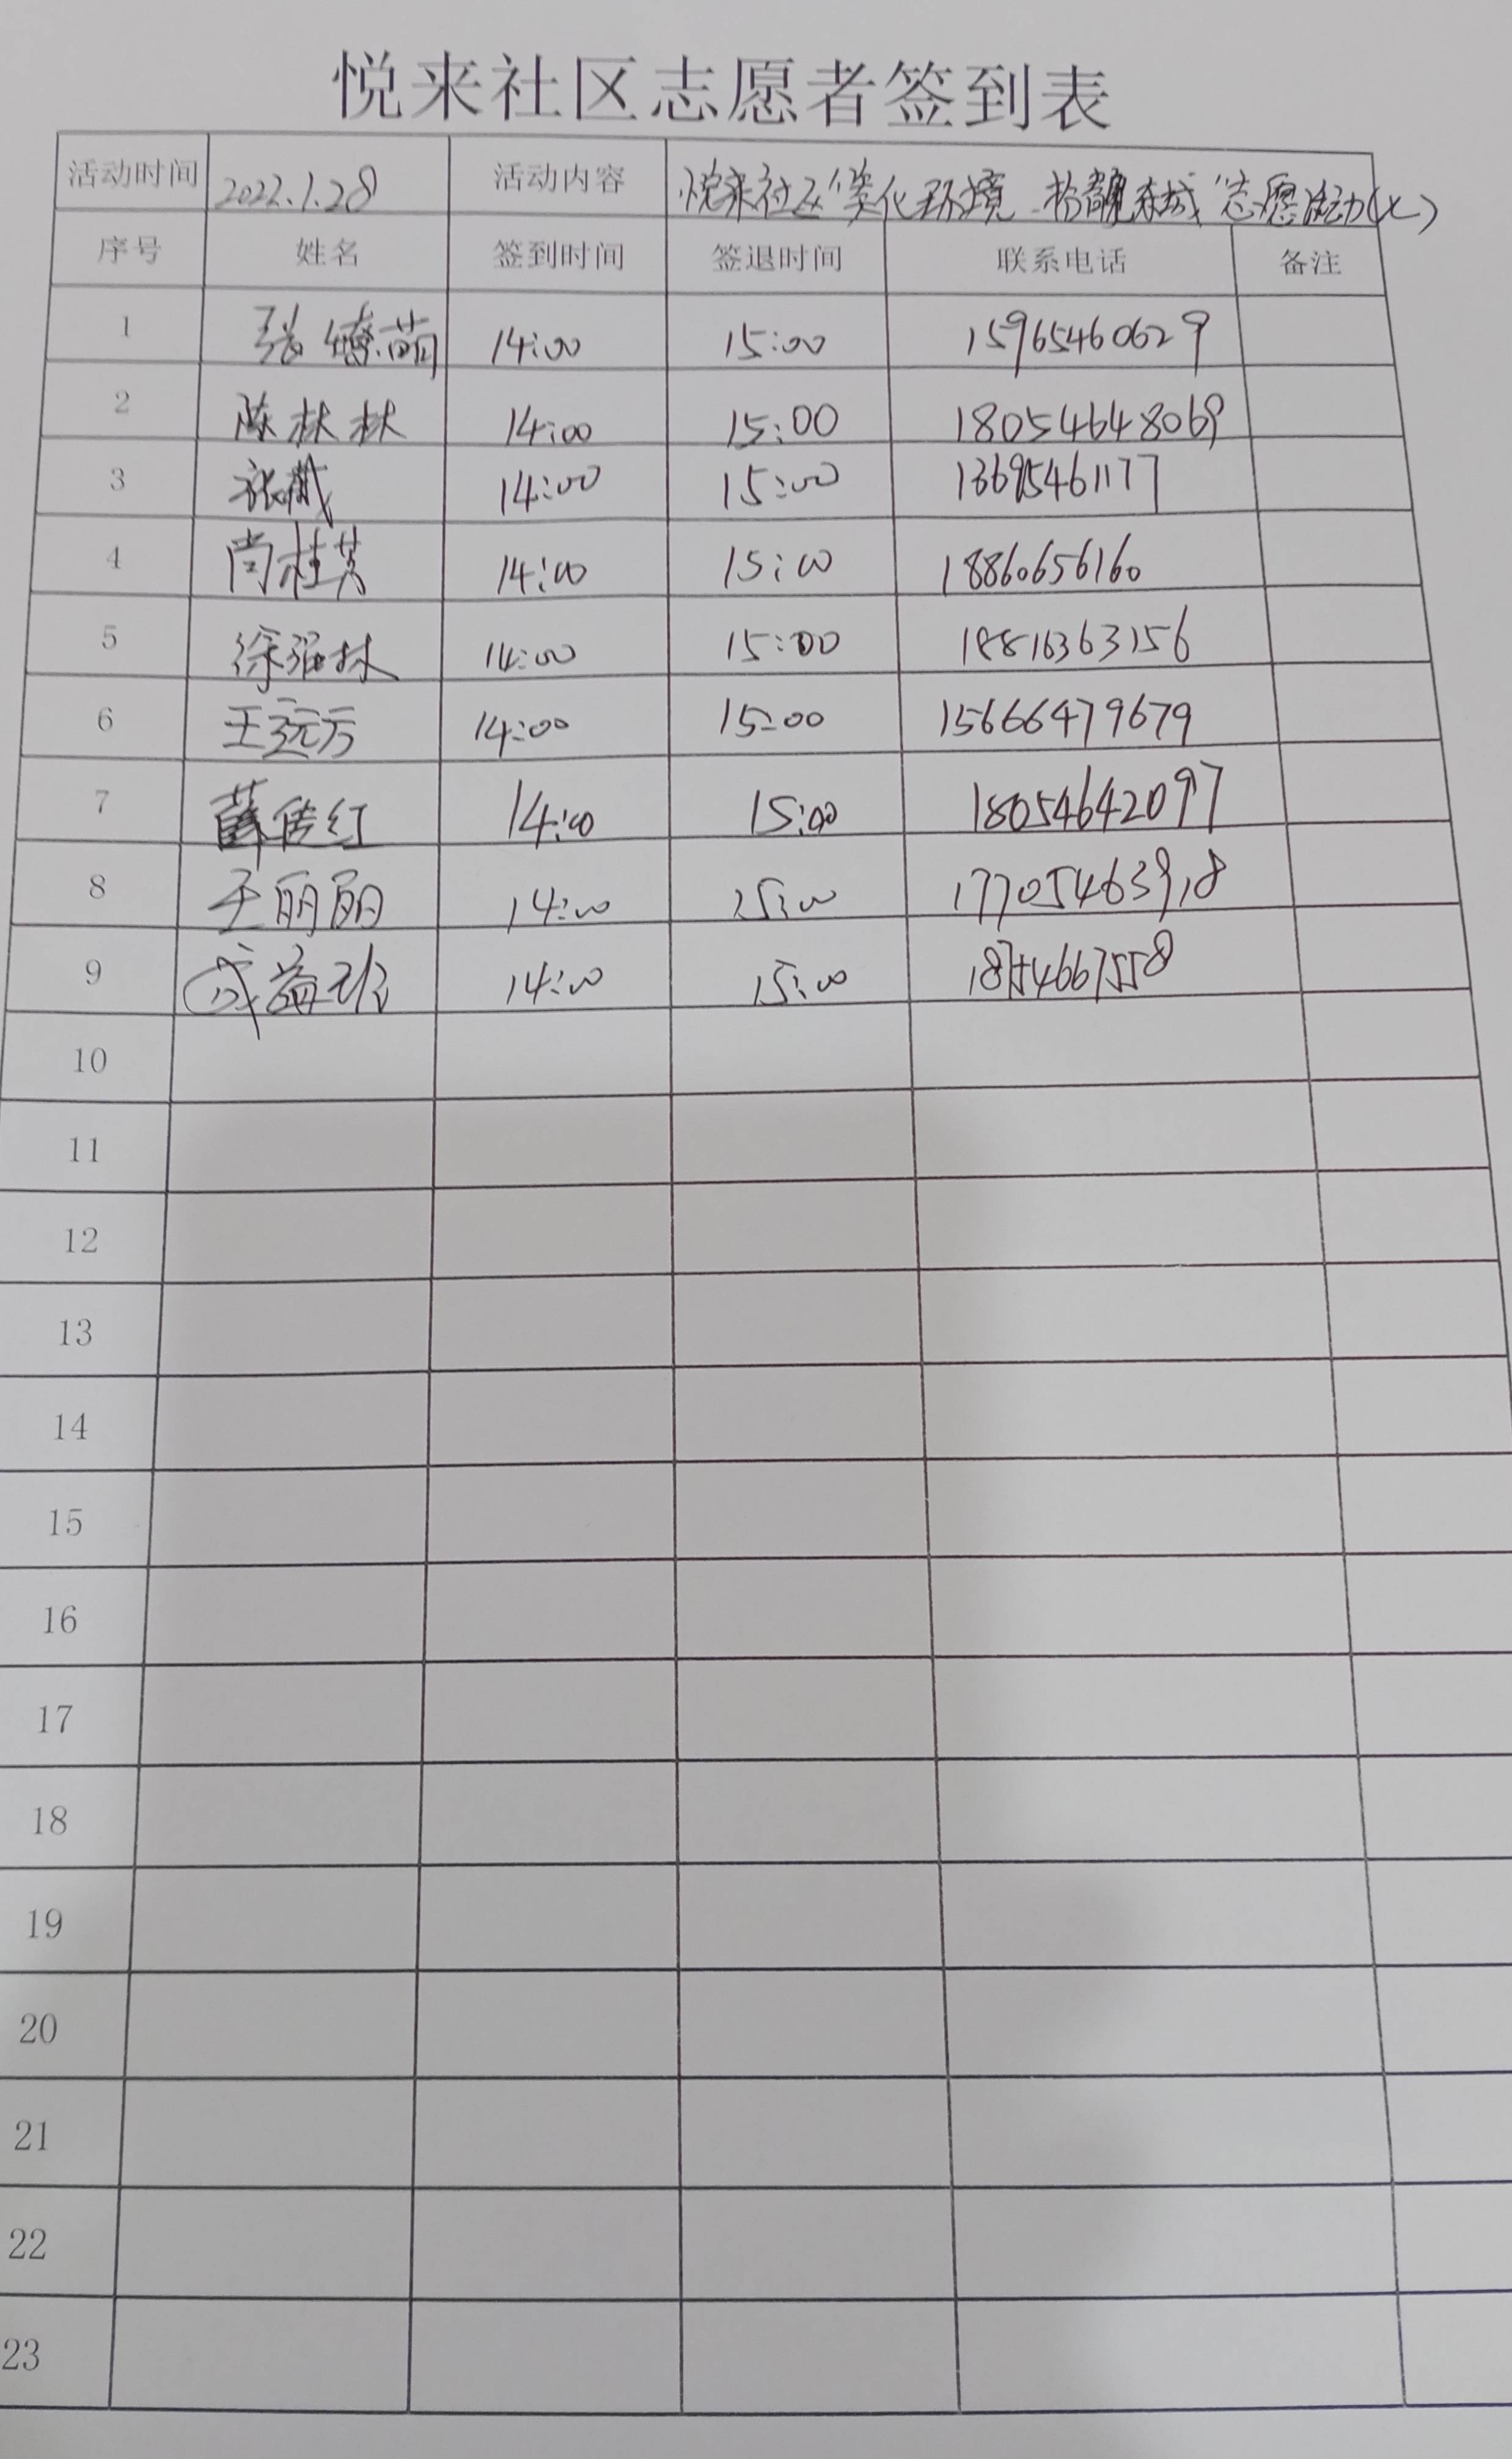 悦来社区志愿者签到表
活动时间 2022.1.28 活动内容 悦来社区"美化环境 扮靓东城"志愿活动(七)
序号 姓名 签到时间 签退时间 联系电话 备注
1 张 萌 14:00 15:00 15965460629
2 陈林林 14:00 15:00 18054648069
3 张 14:00 15:00 13695461177
4 尚桂芬 14:00 15:00 18860656160
5 徐福林 14:00 15:00 18816363156
6 王远方 14:00 15:00 15666479679
7 薛传红 14:00 15:00 18054642097
8 王丽丽 14:00 15:00 17705463918
9 成益 14:00 15:00
10
11
12
13
14
15
16
17
18
19
20
21
22
23